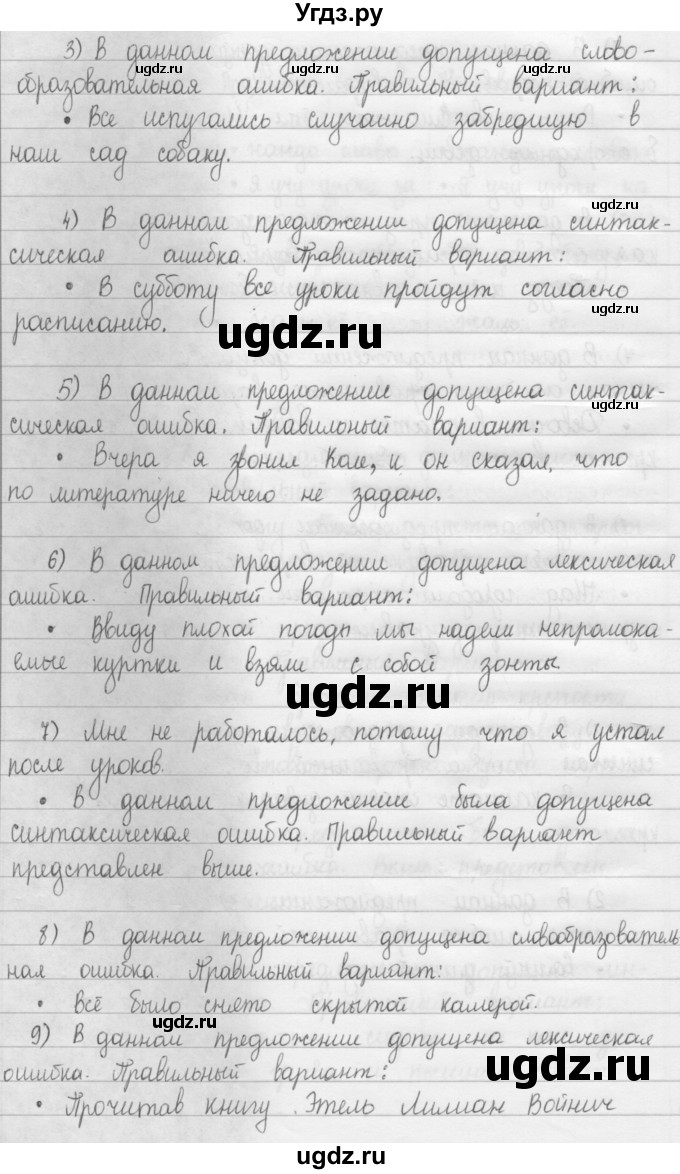 Угдз.ру
3) В данном предложении допущена слово-
ugdz.ru ugdz.ru
образовательная ошибка. Правильный вариант:
• Все испугались случайно забредищую в
ugdz.ru
наш сад собаку.
ugdz.ru
4) В данном предложении допущена синтак-
ugdz.ru
сическая ошибка. Правильный вариант:
• В субботу все уроки пройдут согласно
расписанию.
ugdz.ru ugdz.ru
5) В данном предложении допущена синтак-
ugdz.ru
сическая ошибка. Правильный вариант:
• Вчера я звонил Коле, и он сказал, что
по литературе ничего не задано.
ugdz.ru
6) В данном предложении допущена лексическая
ugdz.ru
ошибка. Правильный вариант:
• Ввиду плохой погоды мы надели непромока-
емые куртки и взяли с собой зонты.
ugdz.ru ugdz.ru
7) Мне не работалось, потому что я устал
после уроков.
ugdz.ru
• В данном предложении была допущена
синтаксическая ошибка. Правильный вариант
представлен выше.
ugdz.ru
8) В данном предложении допущена словообразователь
ugdz.ru
ная ошибка. Правильный вариант:
• Всё было снято скрытой камерой.
ugdz.ru
9) В данном предложении допущена лексическая
ugdz.ru
ошибка. Правильный вариант:
• Прочитав книгу Этель Лилиан Войнич
ugdz.ru